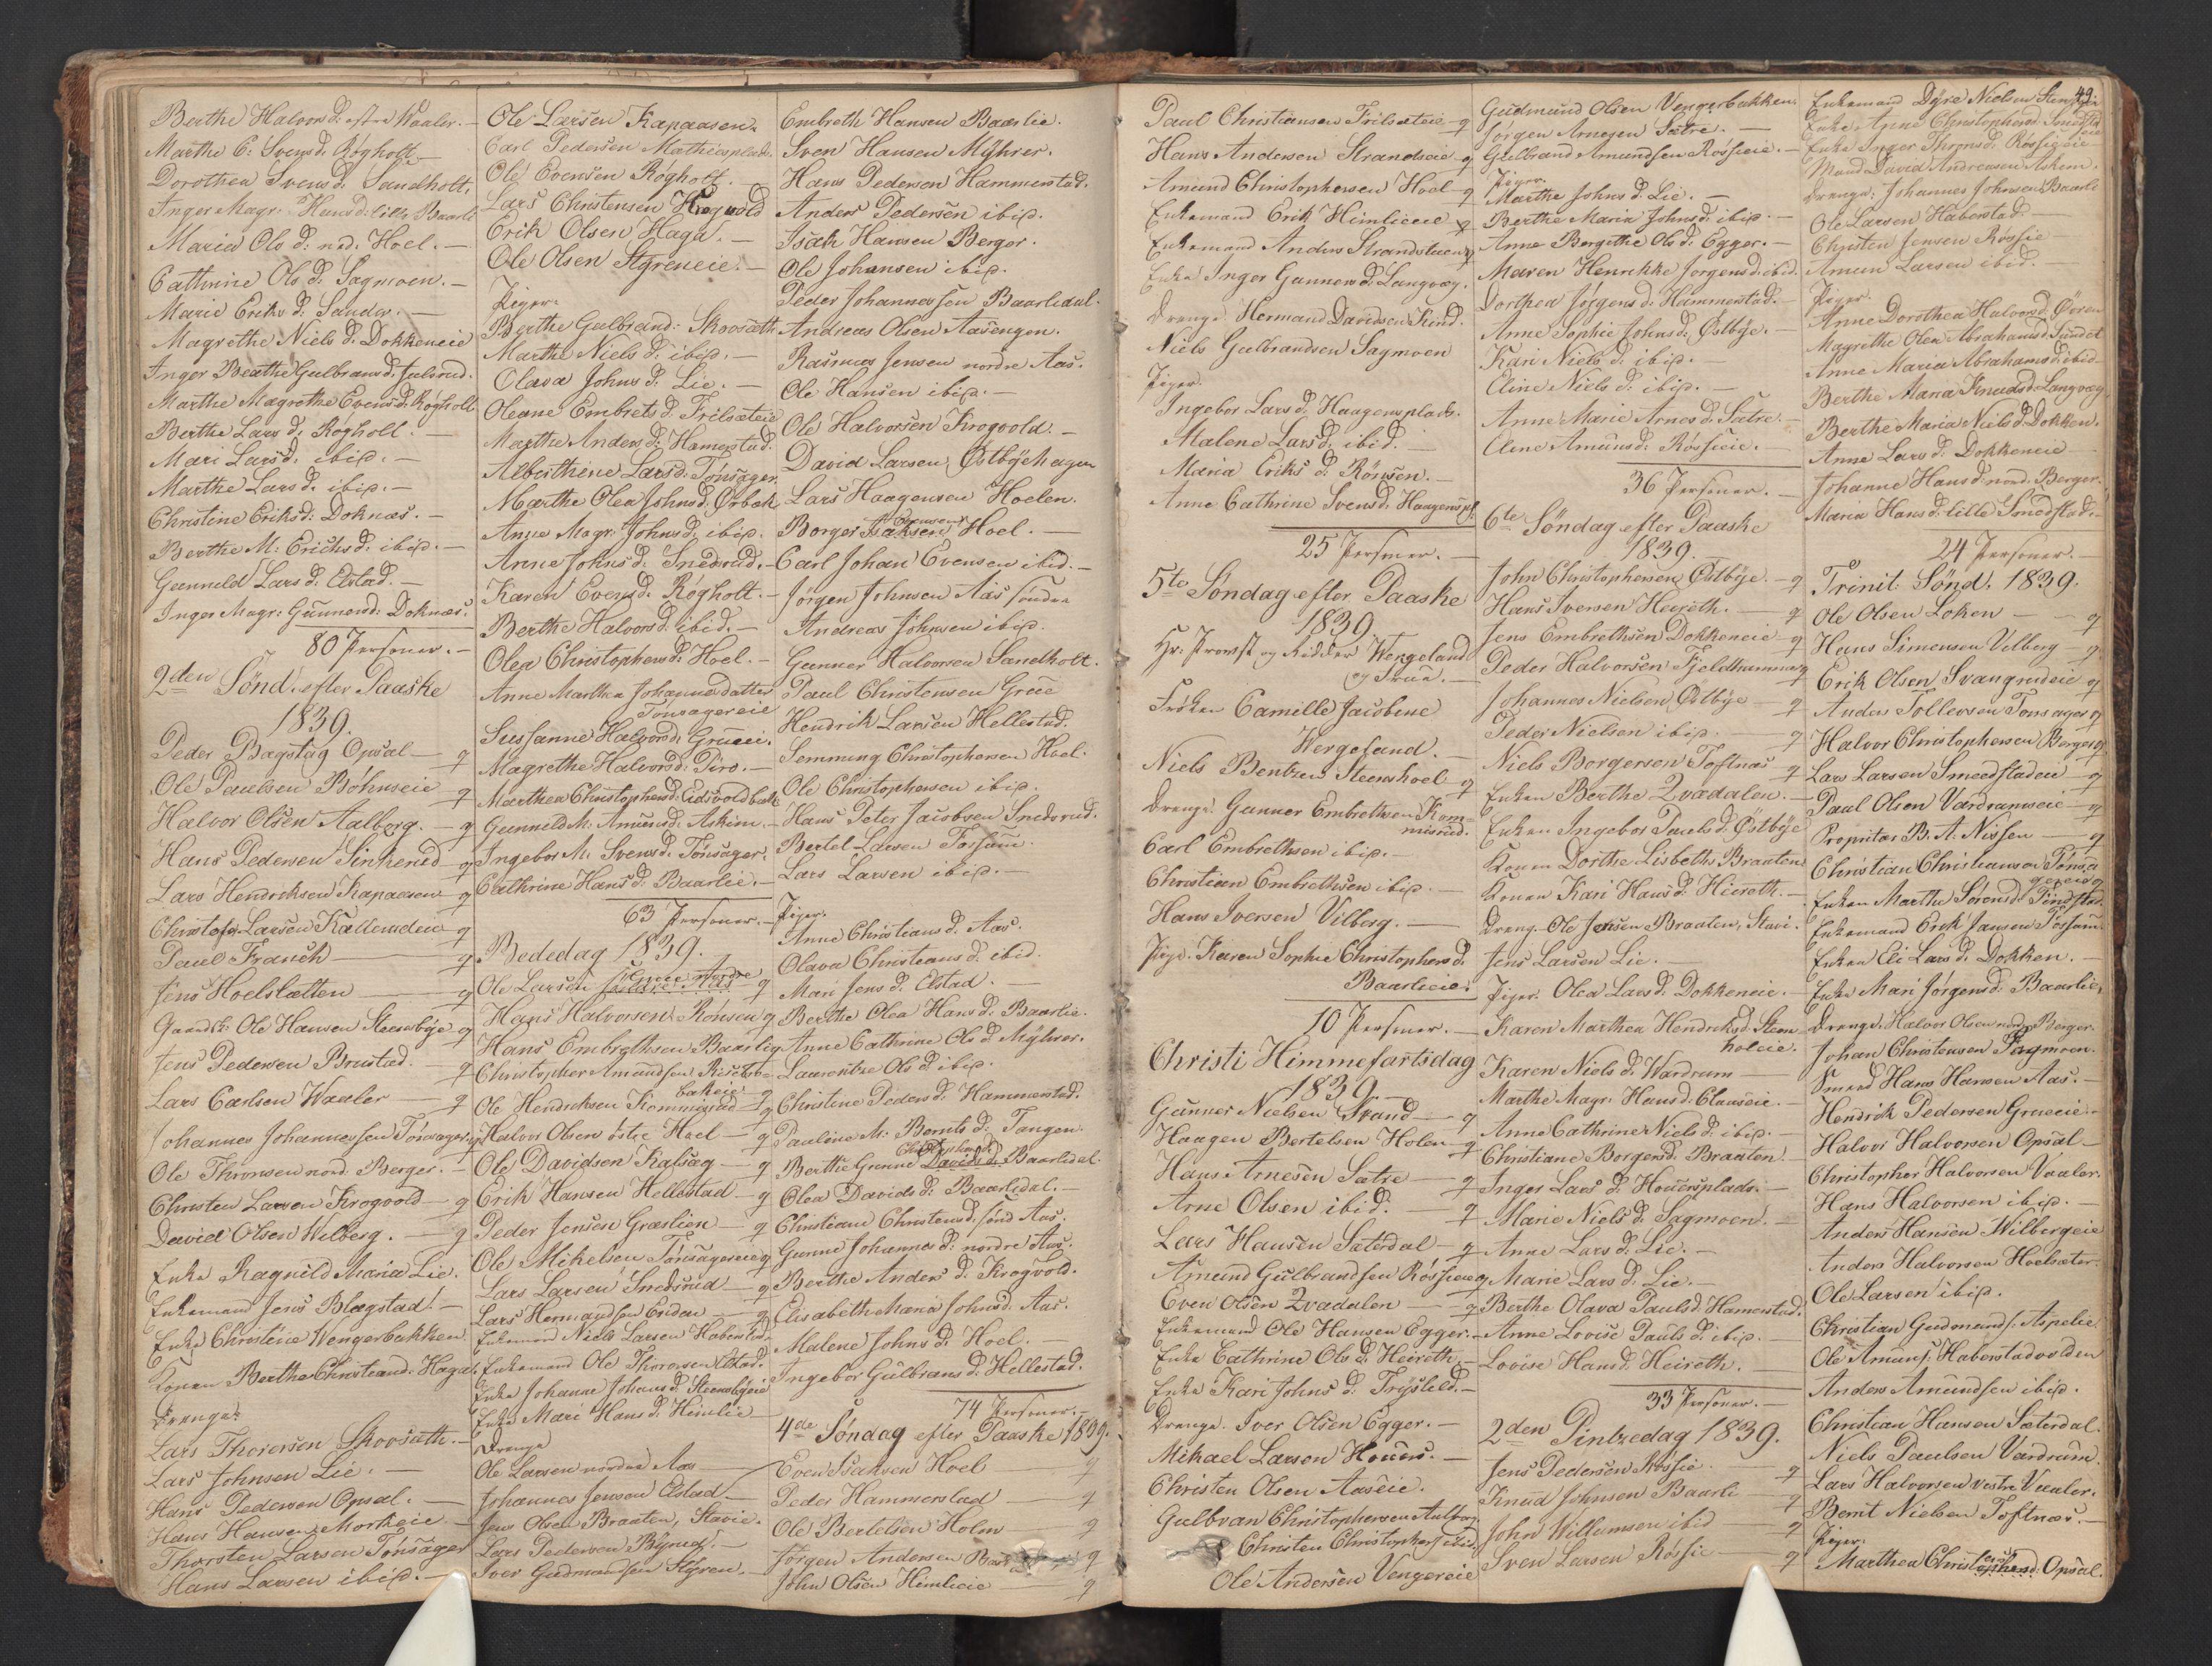 Berthe Halvorsd: østre Waaler. -
Marthe E: Svensd. Røgholt
Dorothea Svensd. Sandholt.
Inger Magr: Hansd: lille Baarli
Maria Ols d: ned. Hoel. -
Cathrine Ols d: Sagmoen. -
Marie Eriks d: Sander. -
Magrethe Niels d: Dokkeneie
Inger Berthe Gulbransd: Julsrud.
Marthe Magrethe Evensd: Røgholt
Berthe Lars d. Røgholt. -
Mari Larsd. ibid. -
Marthe Lars d. ibid. -
Christine Eriksd: Doknæs. -
Berthe M: Erichsd: ibid. -
Gunneld Lars d. Elstad. -
Inger Magr: Gunnersd: Doknæs.
80 Personer. -
2den Sønd. efter Paaske
1839.
Peder Bagstag Opsal - g
Ole Paulsen Bøhnseie g
Halvor Olsen Aalborg. - g
Hans Pedersen Sinkerud - g
Lars Hendriksen Kapaasen - g
Christofer Larsen Kallerudeie g
Paul Fransch - g
Jens Hoelsletten - g
Gaardb: Ole Hansen Steensbye - g
Jens Pedersen Brustad. - g
Lars Carlsen Waaler - g
Johannes Johannessen Tønsager g
Ole Thronsen nord. Berger. -
Christen Larsen Krogvold - g
David Olsen Welberg. - g
Enke Ragnild Maria Lie.
Enkemand Jens Blegstad. -
Enke Christine Wengerbakken
Konen Berthe Christiansd: Haga.
Drenge:
Lars Thorersen Skovsæth. -
Lars Johnsen Lie. -
Hans Pedersen Opsal. -
Hans Hansen Morkeie -
Thorsten Larsen Tønsager
Hans Larsen ibid. -
Ole Larsen Kapaasen.
Carl Pedersen Mathiesplads.
Ole Evensen Røgholt. -
Lars Christensen Krogvold
Erik Olsen Haga. -
Ole Olsen Styreneie. -
Piger.
Berthe Gulbrand: Skovsæth
Marthe Niels d. ibid. -
Olava Johns d. Lie. -
Oleane Embrets d. Frilsæteie
Marthe Anders d: Hamerstad.
Alberthene Larsd: Tønsager.
Marthe Olea Johnsd. Ørbæk
Anne Magr: Johnsd: ibid.
Anne Johns d. Snedsrud. -
Karen Evensd. Røgholt. -
Berthe Halvorsd. ibid. -
Olea Christophersd: Hoel. -
Anne Marthea Johannesdatter
Tønsagereie
Sussanne Halvorsd. Grueeie.
Magrethe Halvorsd. Piro. -
Marthea Christophersd: Eidsvoldbak
Gunneld M. Amunsd. Askim. -
Ingebor M. Svensd: Tønsager.
Cathrine Hans d. Baarlie. -
63 Personer. -
Bededag 1839.
Ole Larsen Gruee nordre g
Hans Halvorsen Rønsen g
Hans Embrethsen Baarlie g
Christopher Amundsen Risebro-
bakeie - g
Ole Hendriksen Kommisrud - g
Halvor Olsen østre Hoel - g
Ole Davidsen Kalsag - g
Erik Hansen Hellestad - g
Peder Jensen Græslien - g
Ole Mikelsen Tønsagereie g
Lars Larsen Snedsrud - g
Lars Hermandsen Enden - g
Enkemand Niels Larsen Haberstad.
Enkemand Ole Thorersen Elstad.
Enke Johanne Johansd. Steensbyeie
Enke Mari Hans d. Himlie -
Drenge
Ole Larsen nordre Aas
Johannes Jensen Elstad -
Jens Olsen Braaten, Stavie.
Lars Pedersen Bjerud. -
Iver Gudmandsen Styren. -
Embreth Hansen Baarlie.
Sven Hansen Myhrer.
Hans Pedersen Hammerstad.
Anders Pedersen ibid.
Isak Hansen Berger.
Ole Johansen ibid.
Peder Johannessen Baarlidal.
Andreas Olsen Aasengen.
Rasmus Jensen nordre Aas.
Ole Hansen ibid. -
Ole Halvorsen Krogvold. -
David Larsen Østbyehagen
Lars Haagensen Hoelen.
Borger Isaksen Evensen Hoel. -
Carl Johan Evensen ibid. -
Jørgen Johnsen Aas søndre
Andreas Johnsen ibid.
Gunner Halvorsen Sandholt.
Paul Christensen Grue
Hendrik Larsen Hellestad.
Semming Christophersen Hoel.
Ole Christophersen ibid.
Hans Peter Jacobsen Snedsrud.
Bertel Larsen Fossum.
Lars Larsen ibid. -
Piger.
Anne Christians d. Aas.
Olava Christians d. ibid.
Mari Jens d. Elstad. -
Berthe Olea Hans d. Baarlie.
Anne Cathrine Ols d. Myhrer.
Laurentze Ols d. ibid.
Christine Peders d. Hammerstad.
Pauline M: Bernts d: Tangen.
Berthe Grenne Davids d. Christophersd: Baarlidal.
Olea Davids d: Baarlidal. -
Christiane Christensd. sønd Aas.
Gunne Johannes d. nordre Aas.
Berthe Anders d. Krogvold.
Elisabeth Maria Johnsd. Aas.
Malene Johns d. Hoel. -
Ingebor Gulbrans d. Hellestad.
74 Personer. -
4de Søndag efter Paaske 1839.
Even Isaksen Hoel g
Peder Hammerstad - g
Ole Bertelsen Holm g
Jørgen Andersen g
John Olsen Himlieie g
Paul Christiansen Frilsæteie - g
Hans Andersen Strandseie - g
Amund Christophersen Hoel - g
Enkemand Erik Himlieeie g
Enkemand Anders Strandstuen g
Enke Inger Gunners d. Langvæg.
Drenge. Herman Davidsen Kind.
Niels Gulbrandsen Sagmoen
Piger.
Ingebor Lars d. Haagensplads.
Malene Lars d. ibid. -
Maria Eriks d. Rønsen. -
Anne Cathrine Svensd. Haagenspl:
25 Personer. -
5te Søndag efter Paaske
1839.
Hr. Provst og Ridder Wergeland
og Frue. -
Frøken Camille Jacobine
Wergeland. -
Niels Bentzen Steenshoel g
Drenge. Gunner Embrethsen Kom-
misrud.
Carl Embrethsen ibid. -
Christian Embrethsen ibid. -
Hans Iversen Vilberg. -
Pige. Karen Sophie Christophersd.
Baarlieie.
10 Personer. -
Christi Himmefartsdag
1839.
Gunner Nielsen Strand - g
Haagen Bertelsen Holen - g
Hans Arnesen Sætre - g
Arne Olsen ibid. - g
Lars Hansen Sæterdal - g
Amund Gulbrandsen Røssieie g
Even Olsen Qvædalen - g
Enkemand Ole Hansen Egger. -
Enke Cathrine Ols d. Heireth. -
Enke Kari Johns d. Trysteld. -
Drenge. Iver Olsen Egger. -
Mikael Larsen Houers. -
Christen Olsen Aaseie.
Gulbran Christophersen Aalborg.
Christen Christophers: ibid.
Ole Andersen Vengereie
Gudmund Olsen Vengerbakken.
Jørgen Arnesen Sætre. -
Gulbrand Amundsen Røssieie. -
Piger.
Marthe Johns d. Lie. -
Berthe Maria Johnsd. ibid. -
Anne Bergithe Ols d. Egger. -
Maren Henrikke Jørgensd. ibid.
Dorthea Jørgens d. Hammerstad. -
Anne Sophie Johns d. Østbye. -
Kari Niels d. ibid. -
Eline Niels d. ibid. -
Anne Marie Arnes d. Sætre. -
Eline Amunsd. Røssieie. -
36 Personer. -
6te Søndag efter Paaske
1839.
John Christophersen Østbye. - g
Hans Iversen Heireth. - g
Jens Embrethsen Dokkeneie - g
Peder Halvorsen Fjeldhammer g
Johannes Nielsen Østbye - g
Peder Nielsen ibid. - g
Niels Borgersen Toftnæs g
Enken Berthe Qvædalen. -
Enken Ingebor Paulsd. Østbye
Konen Dorthe Lisbeths Braaten
Konen Kari Hans d. Hiereth. -
Dreng. Ole Jensen Braaten, Stavi.
Jens Larsen Lie. -
Piger. Olea Lars d. Dokkeneie. -
Karen Marthea Hendriksd. Steens-
holeie.
Karen Niels d. Wardrum -
Marthe Magr. Hans d. Clauseie. -
Anne Cathrine Niels d. ibid. -
Christiane Borgersd. Braaten. -
Inger Lars d. Houersplads. -
Marie Niels d. Sagmoen. -
Anne Lars d. Lie. -
Marie Lars d. Lie. -
Berthe Olava Paulsd. Hamerstad.
Anne Lovise Pauls d. ibid. -
Lovise Hansd. Heireth. -
33 Personer. -
2den Pintzedag 1839.
Jens Pedersen Røssie. - g
Knud Johnsen Baarli - g
John Willumsen ibid - g
Sven Larsen Røssie - g
49.
Enkemand Dyre Nielsen
Enke Anne Christophersd. Smedstad
eie
Enke Inger Throns d. Røssieeie
Mand David Andreasen Askim.
Drenge: Johannes Johnsen Baarli
Ole Larsen Haberstad -
Christen Jensen Røssie
Amun Larsen ibid. -
Piger.
Anne Dorothea Halvors d. Øvren
Magrethe Olea Abrahamsd. Sundet
Anne Maria Abrahamsd. ibid
Berthe Maria Knudsd. Langvæg
Berthe Maria Niels d. Dokken.
Anne Lars d. Dokkeneie -
Johanne Hans d. nord. Berger.
Maria Hans d. lille Smedstad. -
24 Personer. -
Trinit. Sønd. 1839.
Ole Olsen Løken - g
Hans Simensen Velberg - g
Erik Olsen Svangrudeie g
Anders Tollevsen Tønsager g
Halvor Christophersen Berger g
Lars Larsen Smedstadeie - g
Paul Olsen Vardrumseie - g
Propritær B. A. Nissen - g
Christian Christiansen Tønsa
gereie g
Enken Marthe Sørensd. Findstad.
Enkemand Erik Jansen Fossum.
Enken Eli Lars d. Dokken. -
Enke Mari Jørgens d. Baarlie,
Drenge. Halvor Olsen nord. Berger.
Johan Christensen Sagmoen.
Smed Hans Hansen Aas. -
Hendrik Pedersen Grueeie. -
Halvor Halvorsen Opsal -
Christopher Halvorsen Vaaler.
Hans Halvorsen ibid. -
Anders Hansen Wilbergeie
Anders Halvorsen Hoelsæter.
Ole Larsen ibid.
Christian Gudmans: Aspelie
Ole Amuns: Haberstadvolden
Anders Amundsen ibid.
Christian Hansen Sæterdal.
Niels Paulsen Vardrum.
Lars Halvorsen vestre Vaaler.
Bernt Nielsen Toftnæs. -
Piger.
Marthea Christophersd: Opsal.